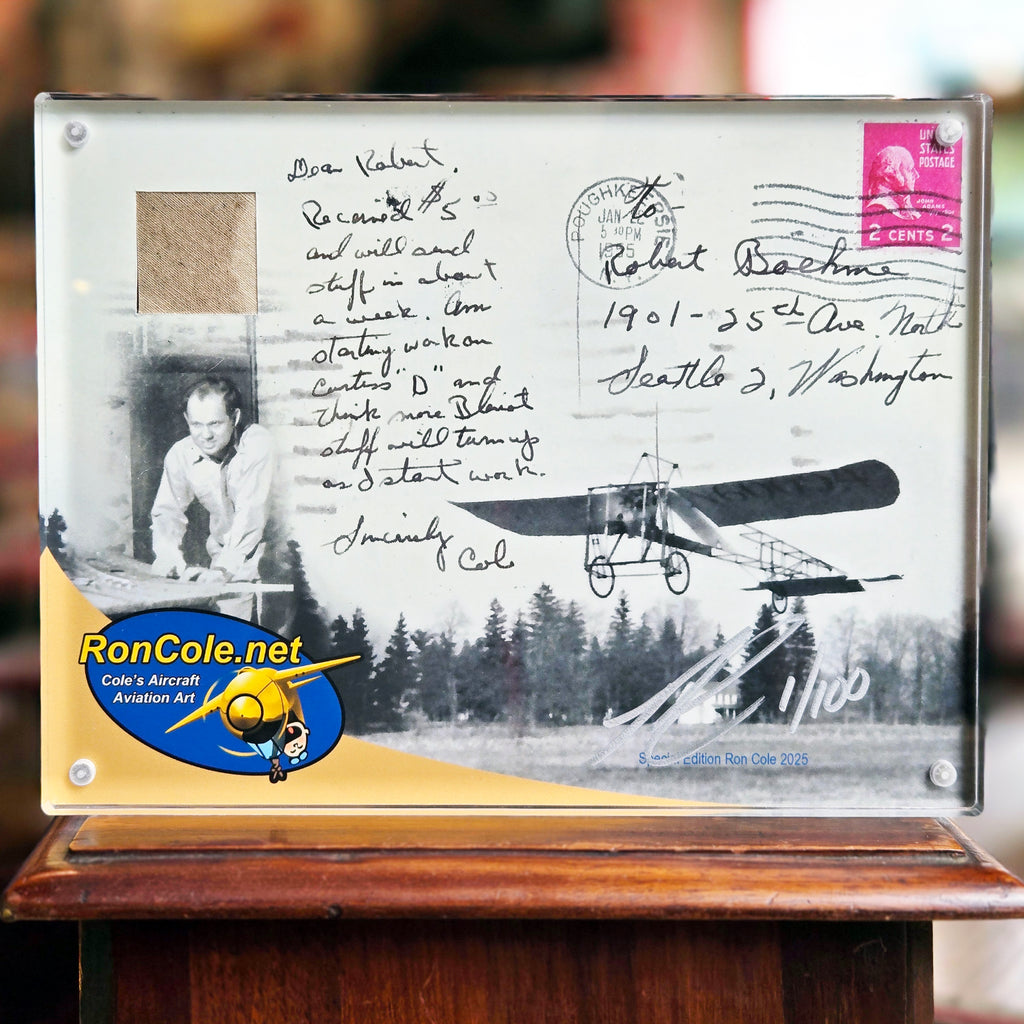 Dear Robert,
Received $5.00
and will send
stuff in about
a week. Am
starting work on
Curtiss "D" and
think more Bleriot
stuff will turn up
as I start work.
Sincerely
Cole
POUGHKEEPSIE
JAN
5 PM
UNITED
STATES
POSTAGE
JOHN
ADAMS
2 CENTS 2
to
Robert Boehme
1901-25th Ave. North
Seattle 2, Washington
RonCole.net
Cole's Aircraft
Aviation Art
1/100
Special Edition Ron Cole 2025